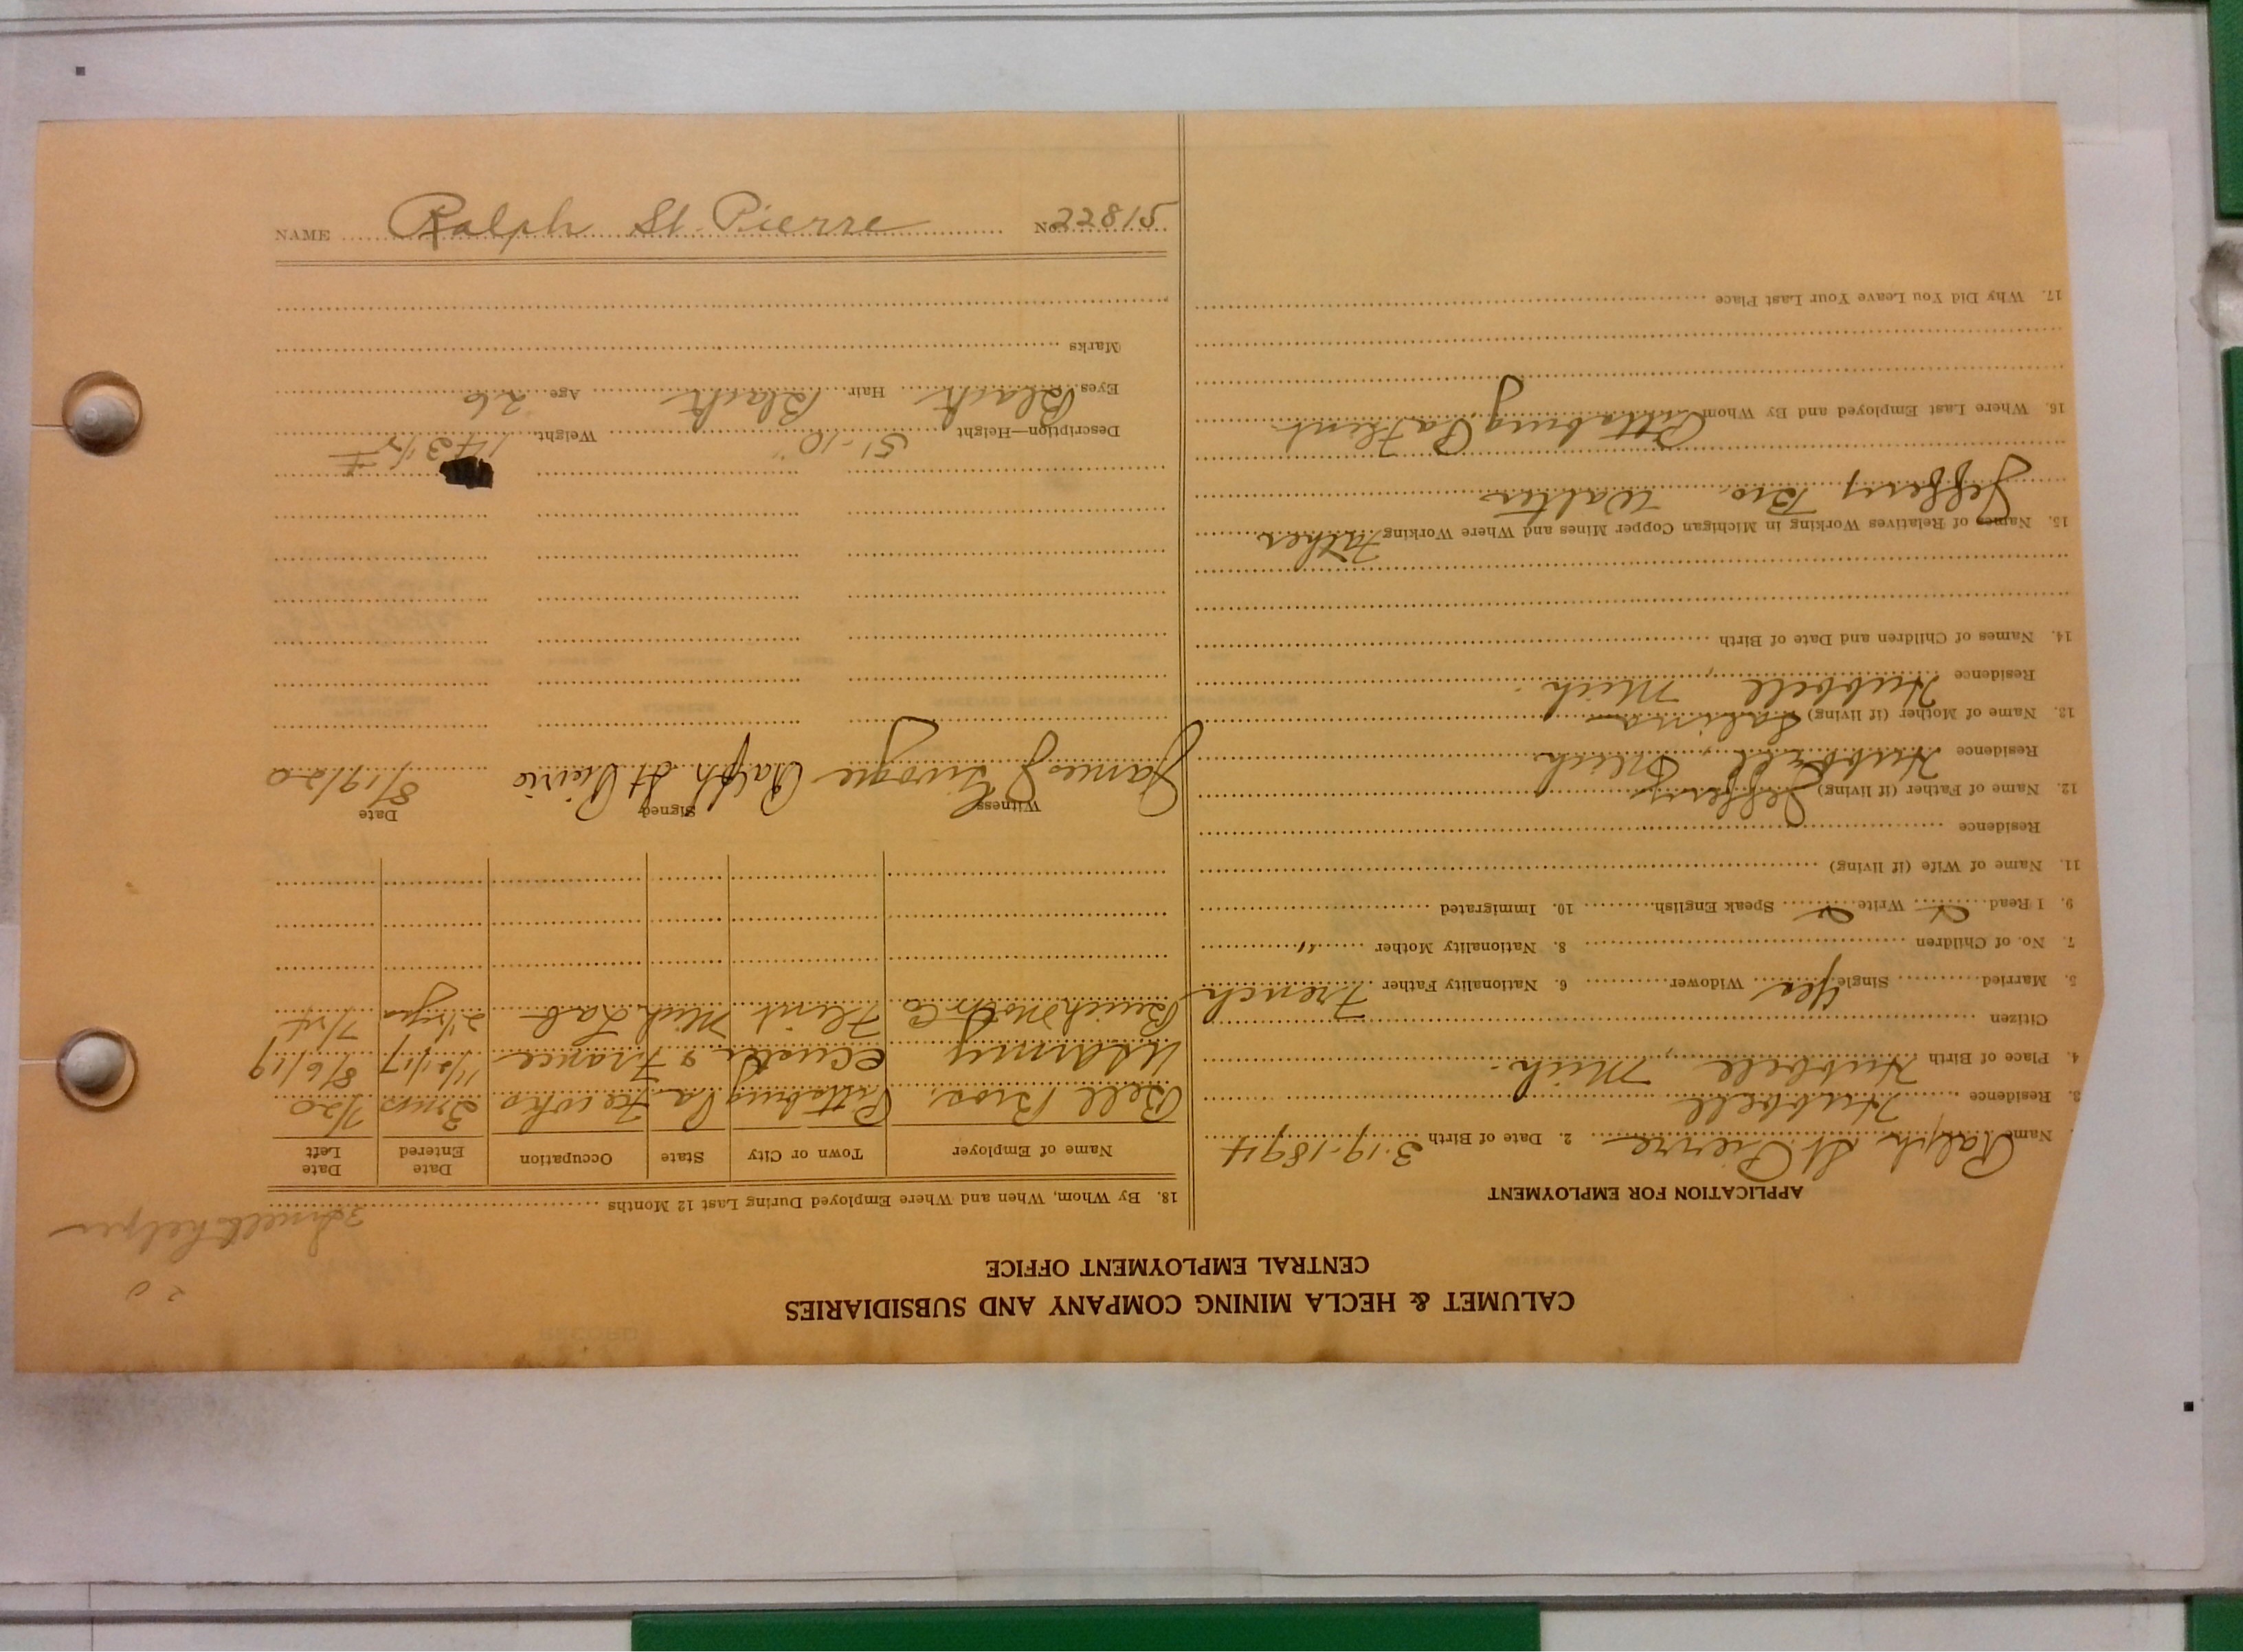 CALUMET & HECLA MINING COMPANY AND SUBSIDIARIES
CENTRAL EMPLOYMENT OFFICE
APPLICATION FOR EMPLOYMENT
Name Ralph St Pierre 2. Date of Birth 3-19-1894
3. Residence Hubbell
4. Place of Birth Hubbell, Mich.
Citizen
5. Married Single Yes Widower 6. Nationality Father French
7. No. of Children 8. Nationality Mother "
9. I Read Write Speak English 10. Immigrated
11. Name of Wife (if living)
Residence
12. Name of Father (if living) Jeffery
Residence Hubbell, Mich
13. Name of Mother (if living) Salina
Residence Hubbell, Mich.
14. Names of Children and Date of Birth
15. Names of Relatives Working in Michigan Copper Mines and Where Working Father
Jeffery Bro. Walter
16. Where Last Employed and By Whom Pittsburg, Pa Flint
17. Why Did You Leave Your Last Place
20
helper
18. By Whom, When and Where Employed During Last 12 Months
Name of Employer Town or City State Occupation Date Entered Date Left
Bell Bros. Pittsburg Pa 3 mos 7/20
US Army & France 11/21/17 8/6/19
Buick Motor Co Flint Mich Lab
Witness Signed Date
James Ralph St Pierre 8/19/20
Description—Height 5'-10" Weight 143 1/2 #
Eyes Black Hair Black Age 26
Marks
NAME Ralph St. Pierre No. 22815